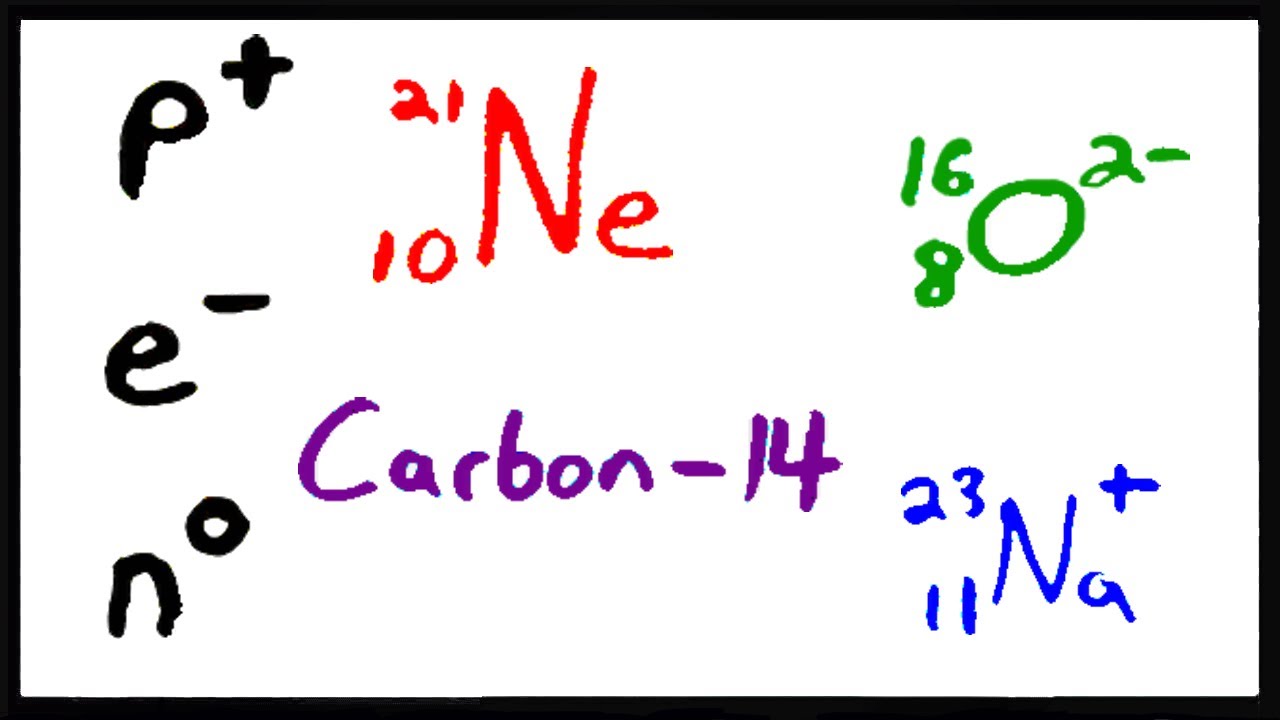 p⁺
²¹₁₀Ne
¹⁶₈O²⁻
e⁻
Carbon-14
n⁰
²³₁₁Na⁺